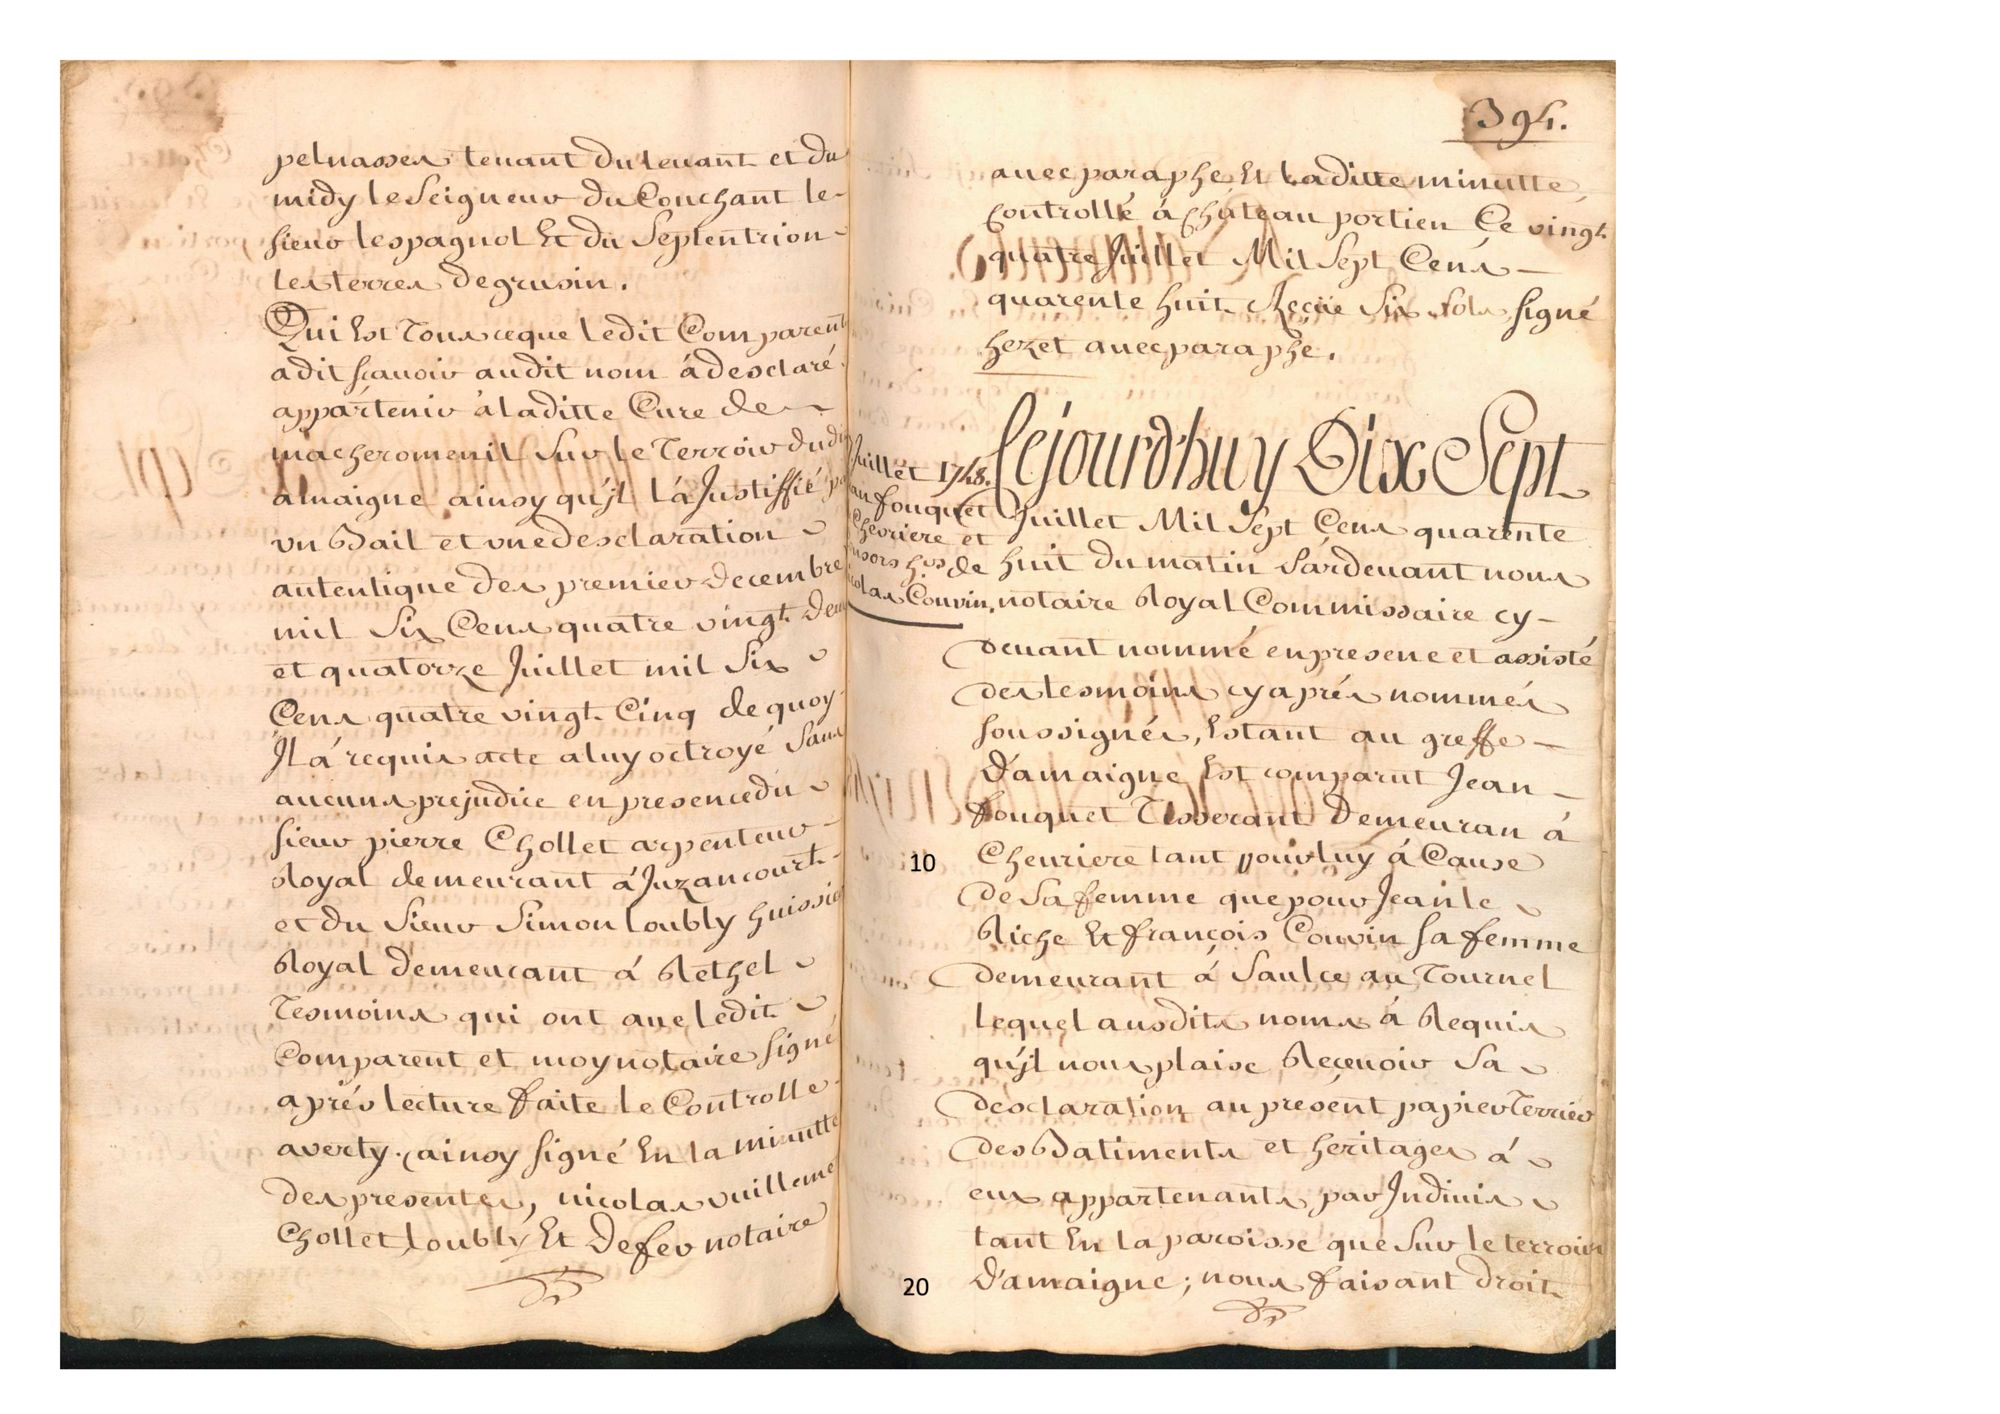 pelnasses tenant du levant et du
midy le Seigneur du Couchant le
sieur lespagnol Et du Septentrion
les terres de grusin.
Qui Est Tous ce que ledit Comparent
a dit scavoir audit nom á desclaré
appartenir a laditte Cure de
macheromenil Sur le Terroir dud
amaigne ainsy qu'jl l'a Justiffié
un Bail et une desclaration
autentique des premier decembre
mil Six Cens quatre vingt
et quatorze Juillet mil Six
Cens quatre vingt Cinq de quoy
Jl á requis acte a luy octroyé Sans
aucuns prejudice en presence du
sieur pierre Chollet arpenteur
Royal demeurant á Juzancourt
et du Sieur Simon Loubly huissier
Royal demeurant á Rethel
Tesmoins qui ont avec ledit
Comparent et moy notaire signé
aprés lecture faite le Controlle
averty. ainsy signé En la minutte
des presentes, nicolas vuilleme
Chollet Loubly Et Defer notaire
394.
avec paraphe Et laditte minutte
Controllé á Chateau portien Ce vingt
quatre Juillet Mil Sept Cens
quarente huit Reçüe Six sols signé
hezet avec paraphe.
Juillet 1748.
fouquet
Chevriere et
hrs de
Couvin,
Cejourd'huy Dix Sept
Juillet Mil Sept Cens quarente
huit du matin Pardevant nous
notaire Royal Commissaire cy
devant nommé en presene et assisté
des tesmoins cy aprés nommés
soussignés, Estant au greffe
D'amaigne Est comparut Jean
fouquet Tisserant Demeuran á
10 Chevriere tant pour luy á Cause
de Sa femme que pour Jean le
Riche Et françois Couvin sa femme
demeurant á Saulce au Tournel
lequel ausdits noms á Requis
qu'jl nous plaise Recevoir Sa
desclaration au present papier Terrier
des Batiments et heritages á
eux appartenants par Indivis
tant En la paroisse que Sur le terroir
20 D'amaigne; nous faisant droit